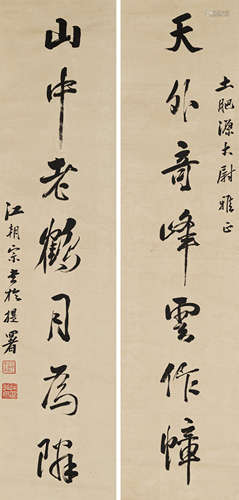 土肥源大尉雅正
天外奇峰雲作幛
山中老鶴月為隣
江朝宗書於提署